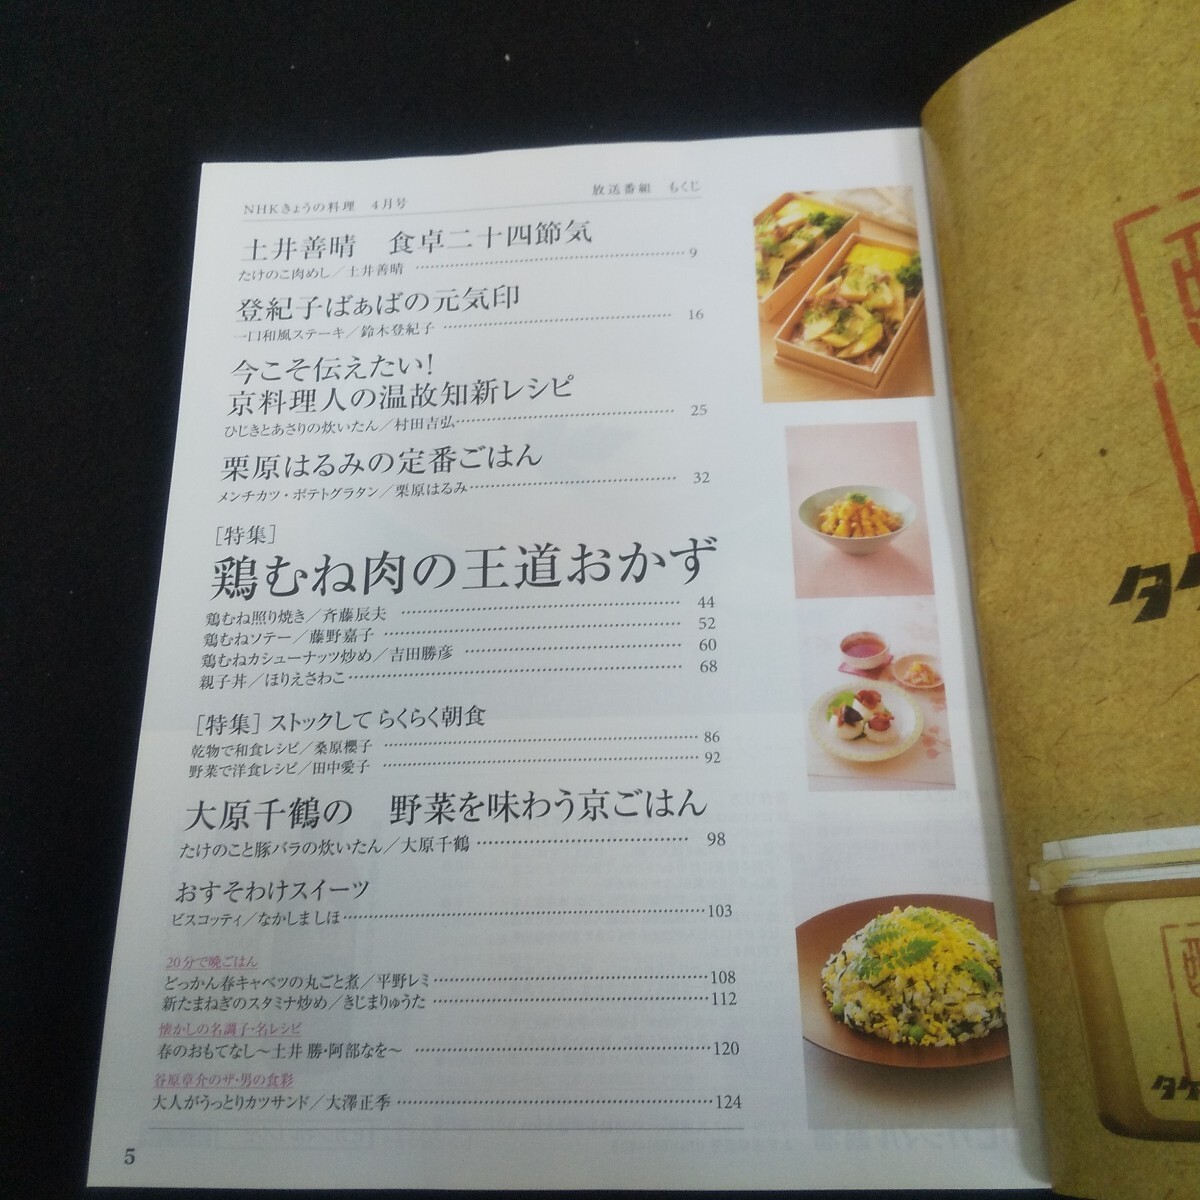 NHKきょうの料理 4月号
放送番組 もくじ
土井善晴 食卓二十四節気
たけのこ肉めし／土井善晴 9
登紀子ばぁばの元気印
一口和風ステーキ／鈴木登紀子 16
今こそ伝えたい!
京料理人の温故知新レシピ
ひじきとあさりの炊いたん／村田吉弘 25
栗原はるみの定番ごはん
メンチカツ・ポテトグラタン／栗原はるみ 32
［特集］
鶏むね肉の王道おかず
鶏むね照り焼き／斉藤辰夫 44
鶏むねソテー／藤野嘉子 52
鶏むねカシューナッツ炒め／吉田勝彦 60
親子丼／ほりえさわこ 68
［特集］ストックして らくらく朝食
乾物で和食レシピ／桑原櫻子 86
野菜で洋食レシピ／田中愛子 92
大原千鶴の 野菜を味わう京ごはん
たけのこと豚バラの炊いたん／大原千鶴 98
おすそわけスイーツ
ビスコッティ／なかしましほ 103
20分で晩ごはん
どっかん春キャベツの丸ごと煮／平野レミ 108
新たまねぎのスタミナ炒め／きじまりゅうた 112
懐かしの名調子・名レシピ
春のおもてなし～土井 勝・阿部なを～ 120
谷原章介のザ・男の食彩
大人がうっとりカツサンド／大澤正季 124
5
タケ
タケ